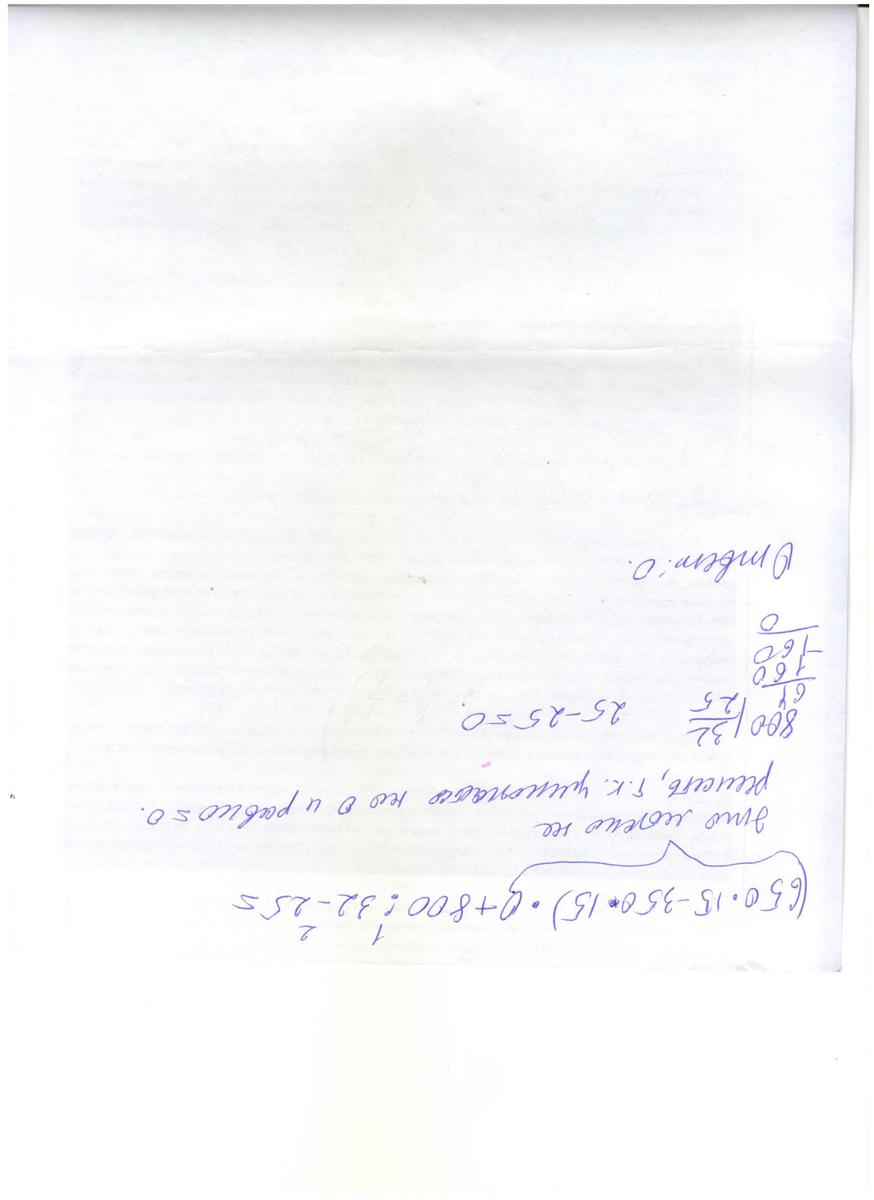 (650·15-350·15)·0+800:32-25=
1 2
это можно не
решать, т.к. умножаем на 0 и равно=0.
800|32
64 25
160
-160
0
25-25=0.
Ответ: 0.